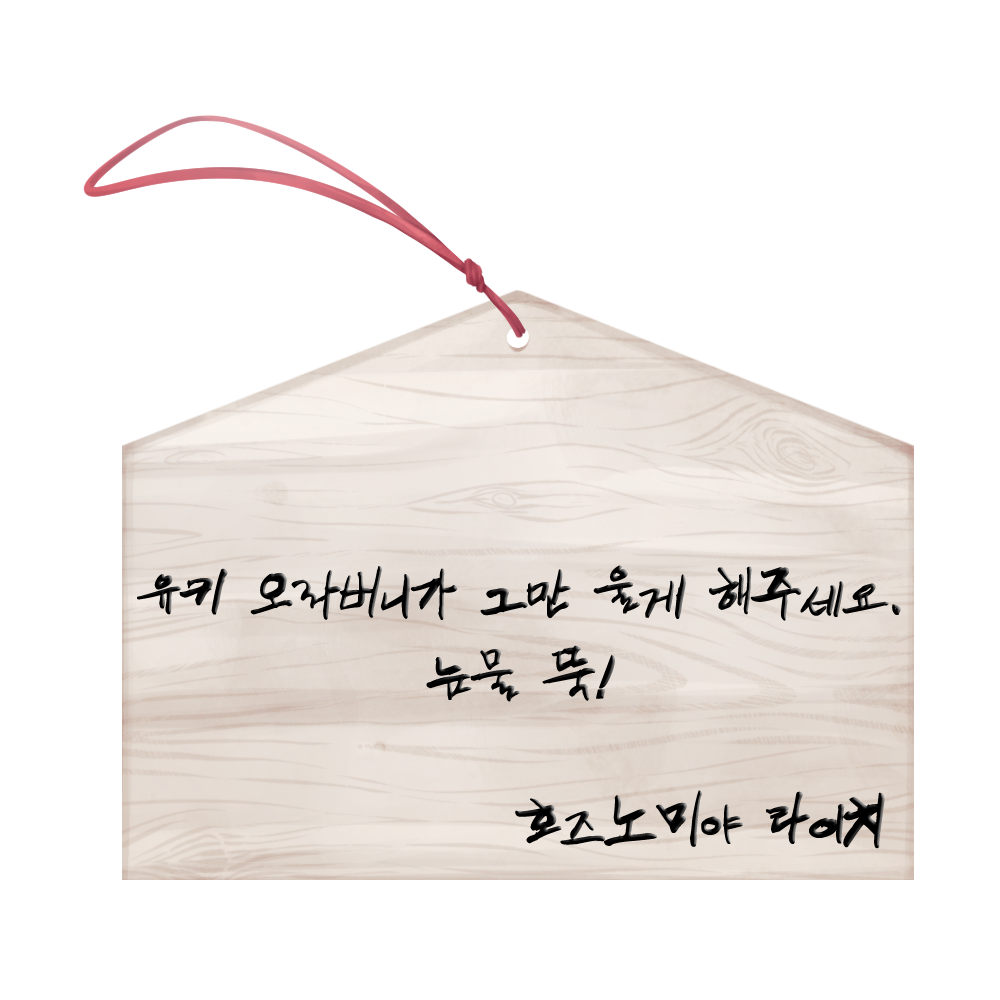 유키 오라버니가 그만 울게 해주세요.
눈물 뚝!
호즈노미야 라이치